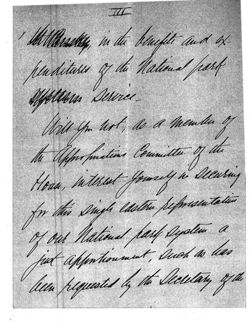 III
in the benefits and ex
penditures of the National park
service.
Will you not, as a member of
the Appropriations Committee of the
House, interest yourself in securing
for this single eastern representative
of our National park system a
just apportionment, such as has
been requested by the Secretary of the